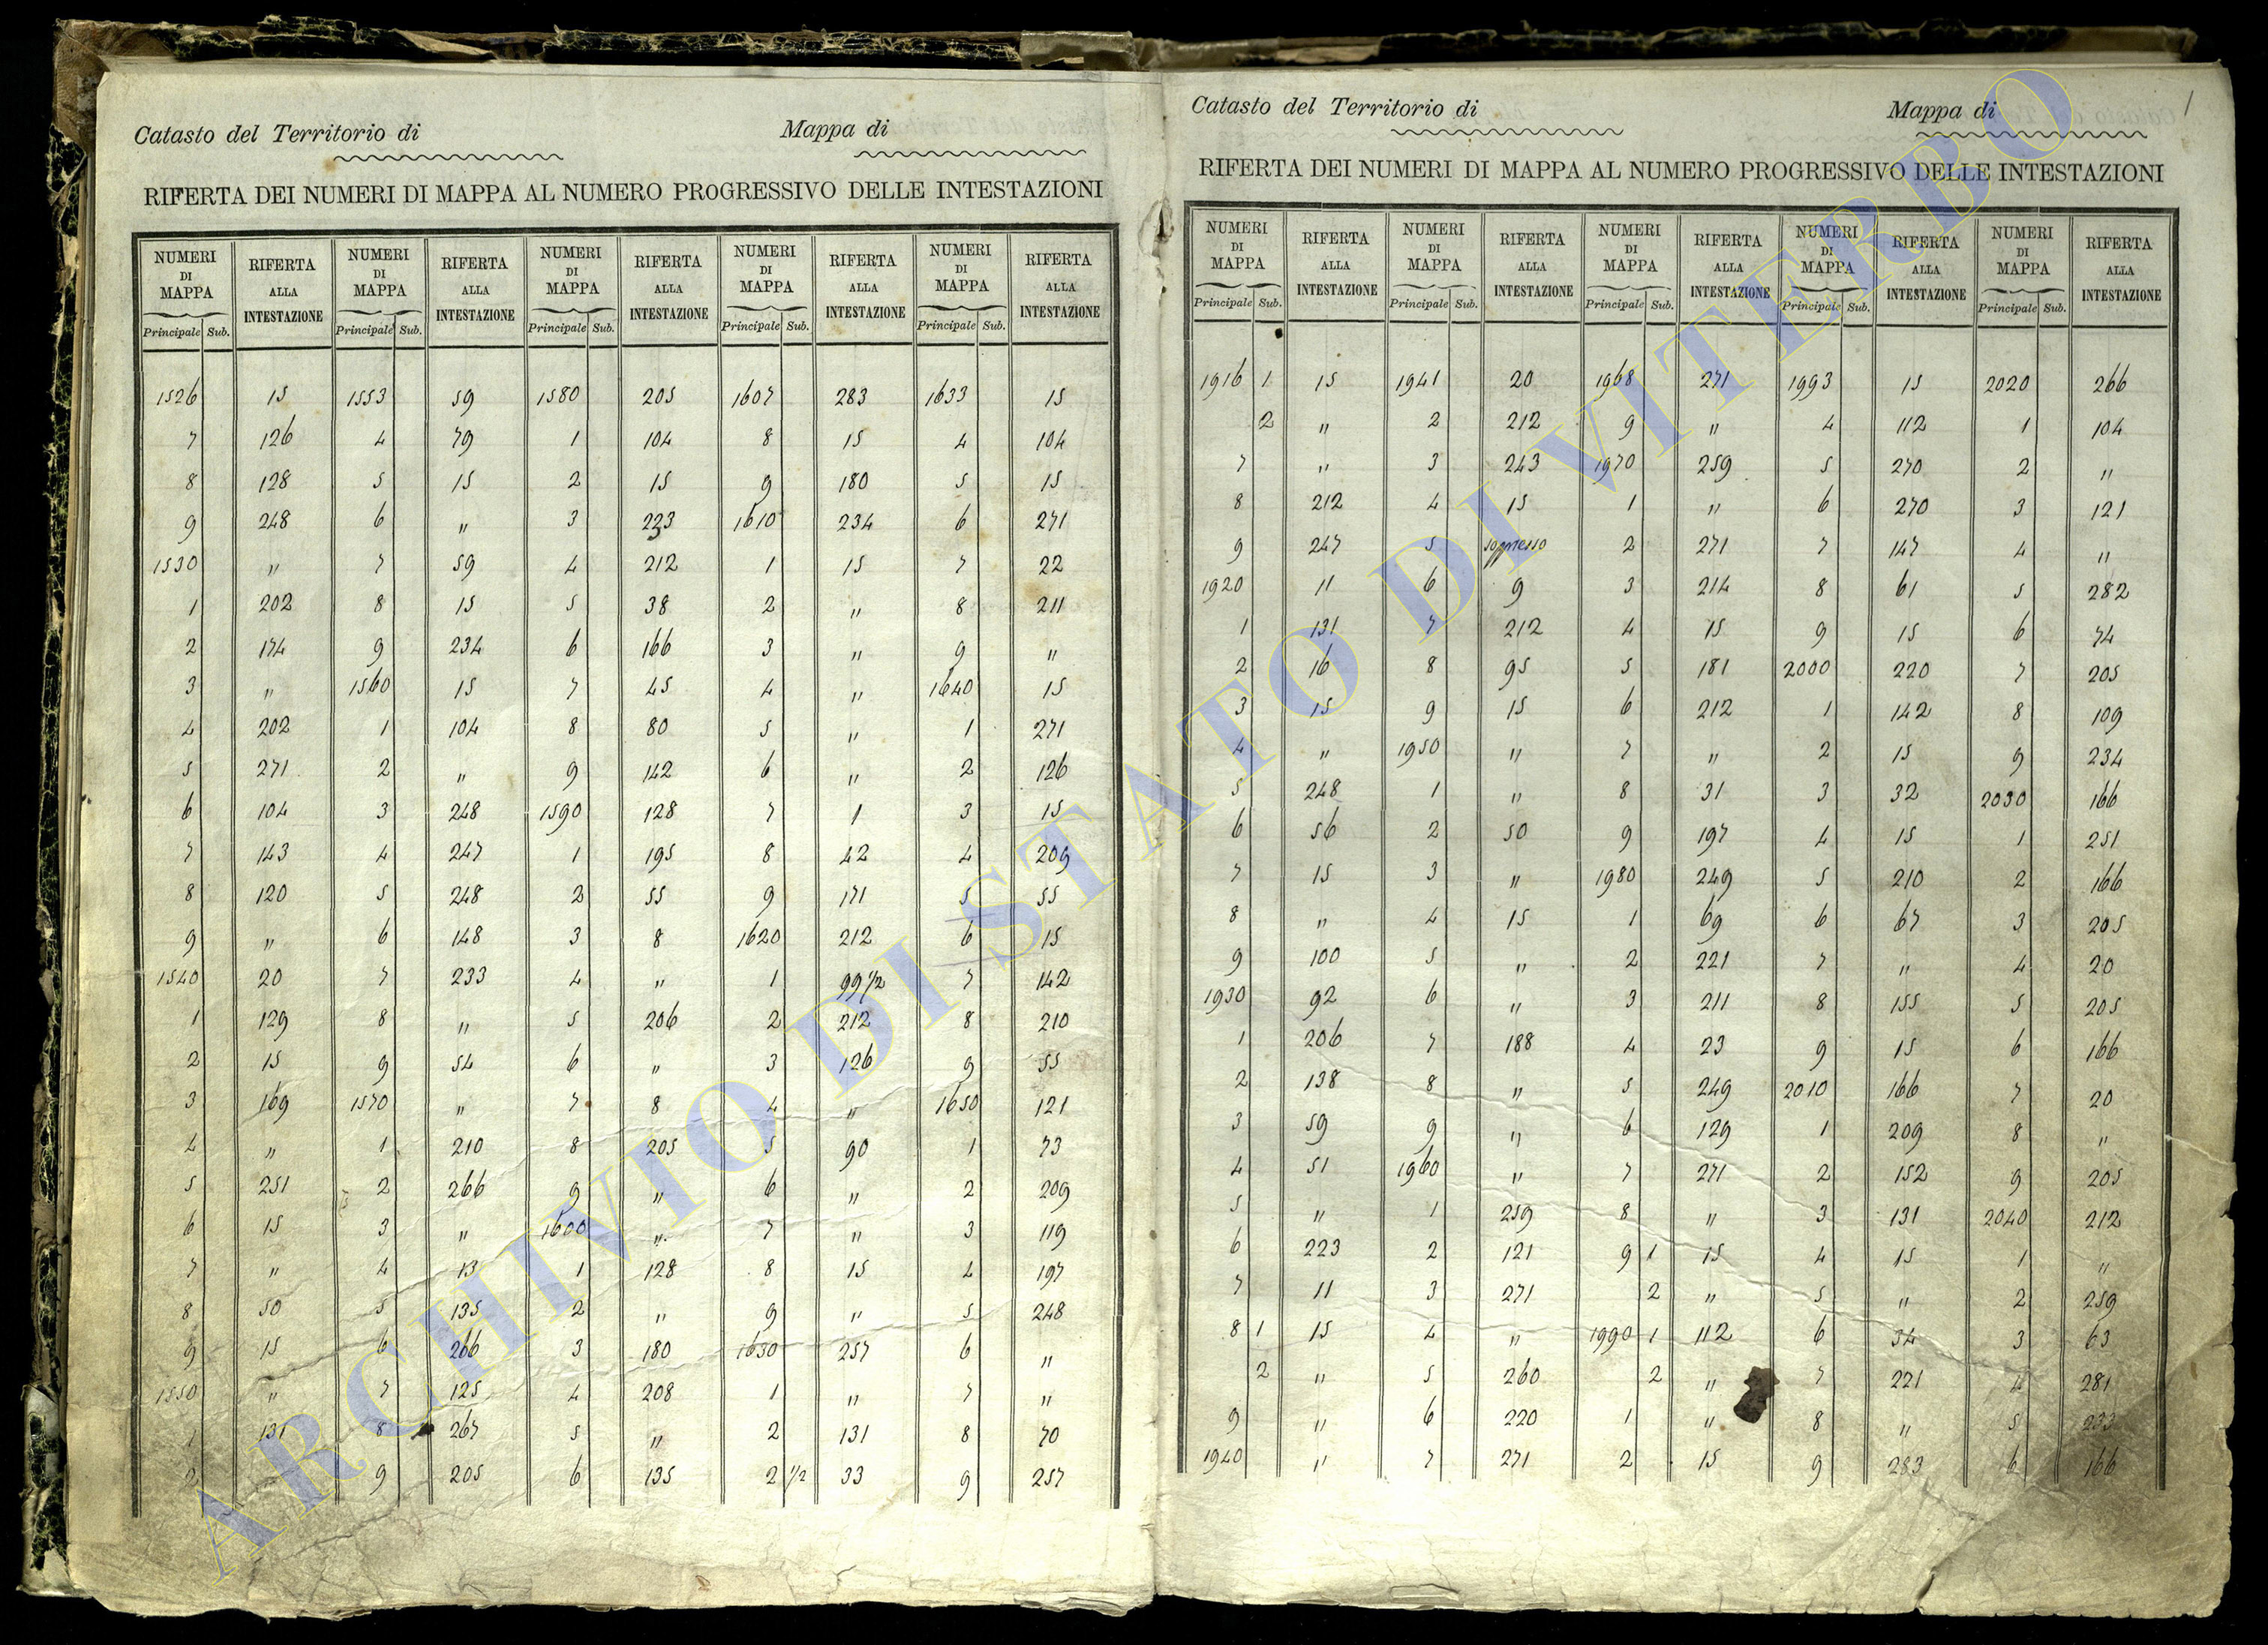 Catasto del Territorio di Mappa di
RIFERTA DEI NUMERI DI MAPPA AL NUMERO PROGRESSIVO DELLE INTESTAZIONI
NUMERI DI MAPPA RIFERTA ALLA INTESTAZIONE NUMERI DI MAPPA RIFERTA ALLA INTESTAZIONE NUMERI DI MAPPA RIFERTA ALLA INTESTAZIONE NUMERI DI MAPPA RIFERTA ALLA INTESTAZIONE NUMERI DI MAPPA RIFERTA ALLA INTESTAZIONE
Principale Sub. Principale Sub. Principale Sub. Principale Sub. Principale Sub.
1526 15 1553 59 1580 205 1607 283 1633 15
7 126 4 79 1 104 8 15 4 104
8 128 5 15 2 15 9 180 5 15
9 248 6 " 3 223 1610 234 6 271
1530 " 7 59 4 212 1 15 7 22
1 202 8 15 5 38 2 " 8 211
2 174 9 234 6 166 3 " 9 "
3 " 1560 15 7 45 4 " 1640 15
4 202 1 104 8 80 5 " 1 271
5 271 2 " 9 142 6 " 2 126
6 104 3 248 1590 128 7 1 3 15
7 143 4 247 1 195 8 42 4 209
8 120 5 248 2 55 9 171 5 55
9 " 6 148 3 8 1620 212 6 15
1540 20 7 233 4 " 1 99 1/2 7 142
1 129 8 " 5 206 2 212 8 210
2 15 9 54 6 " 3 126 9 55
3 169 1570 " 7 8 4 " 1650 121
4 " 1 210 8 205 5 90 1 73
5 251 2 266 9 " 6 " 2 209
6 15 3 " 1600 " 7 " 3 119
7 " 4 13 1 128 8 15 4 197
8 50 5 135 2 " 9 " 5 248
9 15 6 266 3 180 1630 257 6 "
1550 " 7 125 4 208 1 " 7 "
1 131 8 267 5 " 2 131 8 70
2 " 9 205 6 135 2 1/2 33 9 257
1
Catasto del Territorio di Mappa di
RIFERTA DEI NUMERI DI MAPPA AL NUMERO PROGRESSIVO DELLE INTESTAZIONI
NUMERI DI MAPPA RIFERTA ALLA INTESTAZIONE NUMERI DI MAPPA RIFERTA ALLA INTESTAZIONE NUMERI DI MAPPA RIFERTA ALLA INTESTAZIONE NUMERI DI MAPPA RIFERTA ALLA INTESTAZIONE NUMERI DI MAPPA RIFERTA ALLA INTESTAZIONE
Principale Sub. Principale Sub. Principale Sub. Principale Sub. Principale Sub.
1916 1 15 1941 20 1968 271 1993 15 2020 266
2 " 2 212 9 " 4 112 1 104
7 " 3 243 1970 259 5 270 2 "
8 212 4 15 1 " 6 270 3 121
9 247 5 soppresso 2 271 7 147 4 "
1920 11 6 9 3 214 8 61 5 282
1 131 7 212 4 15 9 15 6 74
2 16 8 95 5 181 2000 220 7 205
3 15 9 15 6 212 1 142 8 109
4 " 1950 " 7 " 2 15 9 234
5 248 1 " 8 31 3 32 2030 166
6 56 2 50 9 197 4 15 1 251
7 15 3 " 1980 249 5 210 2 166
8 " 4 15 1 69 6 67 3 205
9 100 5 " 2 221 7 " 4 20
1930 92 6 " 3 211 8 155 5 205
1 206 7 188 4 23 9 15 6 166
2 138 8 " 5 249 2010 166 7 20
3 59 9 " 6 129 1 209 8 "
4 51 1960 " 7 271 2 152 9 205
5 " 1 259 8 " 3 131 2040 212
6 223 2 121 9 1 15 4 15 1 "
7 11 3 271 2 " 5 " 2 259
8 1 15 4 " 1990 1 112 6 34 3 63
2 " 5 260 2 " 7 221 4 281
9 " 6 220 1 " 8 " 5 233
1940 " 7 271 2 15 9 283 6 166
ARCHIVIO DI STATO DI VITERBO